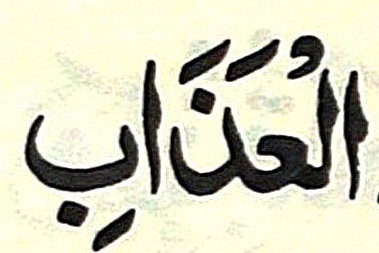 الْعَذَابِ